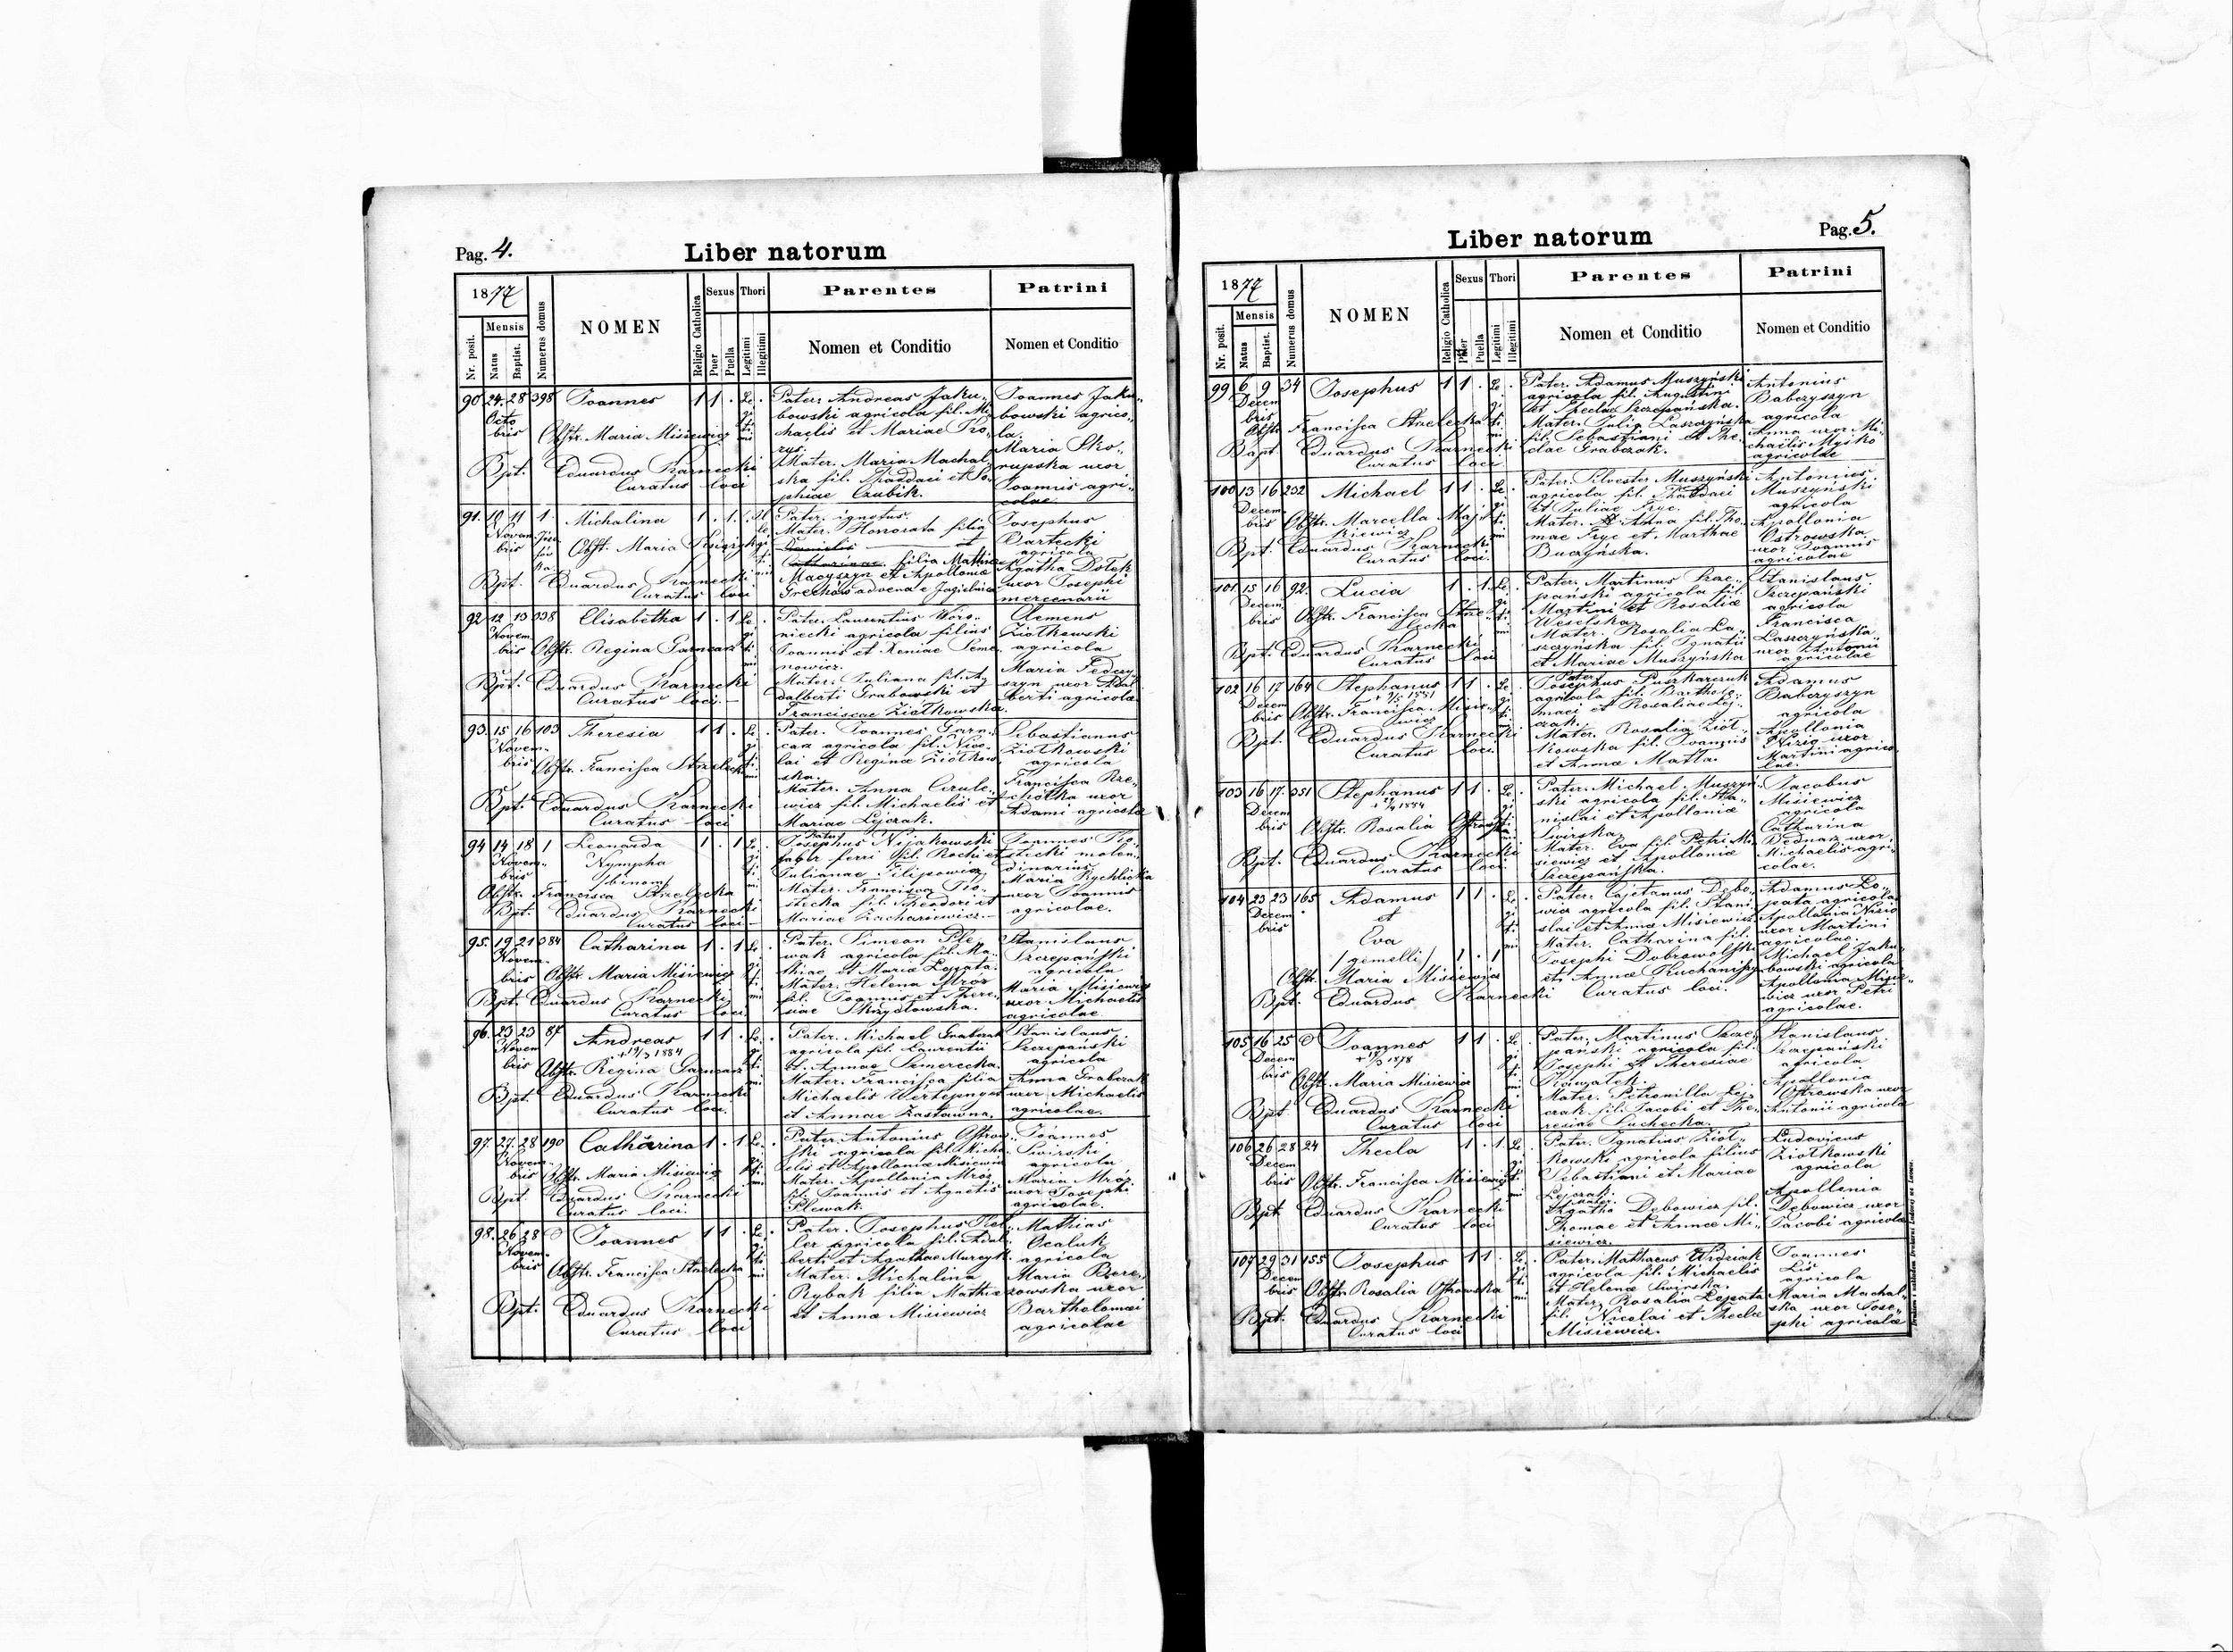 Pag. 4.
Liber natorum
1877
Nr. posit.
Mensis
Natus
Baptist.
Numerus domus
NOMEN
Religio Catholica
Sexus
Puer
Puella
Thori
Legitimi
Illegitimi
Parentes
Nomen et Conditio
Patrini
Nomen et Conditio
90 24. 28 398 Joannes 1 1 .
Octo
bris
Obstr. Maria Misiewicz
Bpt. Eduardus Karnecki
Curatus loci
Pater. Andreas Jaku„
bowski agricola fil. Mi
chaelis et Mariae
Mater. Maria Machal
ska fil. Thaddaei et So„
phiae Czubik.
Joannes Jaku„
bowski agrico„
la.
Maria Sko„
rupska uxor
Joannis agri„
colae
91. 10 11 1. Michalina 1 . 1.
Novem
bris
Obst. Maria
Bpt. Eduardus Karnecki
Curatus loci
Pater. ignotus.
Mater. Honorata filia
filia Mathiae
Macyszyn et Apolloniae
advena e Jagielnica
Josephus
Bartecki
agricola
Agatha Dołek
uxor Josephi
mercenarii
92 12 13 338 Elisabetha 1 . 1
Novem
bris
Obstr. Regina Garncarz
Bpt. Eduardus Karnecki
Curatus loci.
Pater. Laurentius Woro„
niecki agricola filius
Joannis et Xeniae Seme
nowicz.
Mater. Juliana fil. A
dalberti Grabowski et
Franciscae Ziółkowska.
Clemens
Ziółkowski
agricola
Maria Fedczy
szyn uxor Adal
berti agricola
93. 15 16 103 Theresia 1 1 .
Novem„
bris
Obstr. Francisca Strzelecka
Bpt. Eduardus Karnecki
Curatus loci
Pater. Joannes Garn„
carz agricola fil. Nico„
lai et Regina Ziółkow
ska.
Mater. Anna Cerule„
wicz fil. Michaelis et
Mariae Lejczak.
Sebastianus
Ziółkowski
agricola
Francisca Rze„
chotka uxor
Adami agricola
94 14 18 1 Leonarda 1 . 1
Novem„
bris
Nympha
/binom/
Obstr. Francisca Strzelecka
Bpt. Eduardus Karnecki
Curatus loci
Pater
Josephus Nijakowski
faber ferri fil. Rochi et
Julianae Filipowicz
Mater. Francisca Pio„
stecka fil. Theodori et
Mariae Zachariewicz.
Joannes
molen„
dinarius
Maria Rychlicka
uxor Joannis
agricolae.
95. 19 21 384 Catharina 1 . 1
Novem„
bris
Obstr. Maria Misiewicz
Bpt. Eduardus Karnecki
Curatus loci.
Pater. Simeon Ple„
wak agricola fil. Ma„
thiae et Maria Łopata.
Mater. Helena Mróz
fil. Joannis et There„
siae Skrzydłowska.
Stanislaus
Szczepański
agricola
Maria Misiewicz
uxor Michaelis
agricolae
96. 23 23 87 Andreas 1 1 .
Novem
bris
Obstr. Regina Garncarz
Bpt. Eduardus Karnecki
Curatus loci.
Pater. Michael Grabczak
agricola fil. Laurentii
et Annae Semerecka.
Mater. Francisca filia
Michaelis
et Annae Zastawna.
Stanislaus
Szczepański
agricola
Anna Grabczak
uxor Michaelis
agricolae.
97. 27. 28 190 Catharina 1 . 1
Novem„
bris
Obstr. Maria Misiewicz
Bpt. Eduardus Karnecki
Curatus loci.
Pater. Antonius Ostrow„
ski agricola fil. Micha„
elis et Apolloniae Misiewicz
Mater. Apollonia Mróz
fil. Joannis et Agnetis
Plewak.
Joannes
Świrski
agricola
Maria Mróz
uxor Josephi
agricolae.
98. 26 28 Joannes 1 1 .
Novem„
bris
Obstr. Francisca Strzelecka
Bpt. Eduardus Karnecki
Curatus loci
Pater. Josephus Kel„
ler agricola fil. Adal„
berti et Agathae Murczyk.
Mater. Michalina
Rybak filia Mathiae
et Anna Misiewicz
Mathias
Ocaluk
agricola
Maria
uxor
Bartholomaei
agricolae
Pag. 5.
Liber natorum
1877
Nr. posit.
Mensis
Natus
Baptist.
Numerus domus
NOMEN
Religio Catholica
Sexus
Puer
Puella
Thori
Legitimi
Illegitimi
Parentes
Nomen et Conditio
Patrini
Nomen et Conditio
99 6 9 34 Josephus 1 1 .
Decem
bris
Obstr. Francisca Strzelecka
Bapt. Eduardus Karnecki
Curatus loci
Pater. Adamus Muszyński
agricola fil. Augustini
et Theclae Szczepańska.
Mater. Julia Laszczyńska
fil. Sebastiani et The„
clae Grabczak.
Antonius
Babczyszyn
agricola
Anna uxor Mi„
chaelis Myśko
agricolae
100 13 16 232 Michael 1 1 .
Decem
bris
Obstr. Marcella Maj
kiewicz
Bpt. Eduardus Karnecki
Curatus loci.
Pater. Silvester Muszyński
agricola fil. Thaddaei
et Juliae Fryc.
Mater. Anna fil. Tho„
mae Fryc et Marthae
Buczyńska.
Antonius
Muszyński
agricola
Apollonia
Ostrowska
uxor Joannis
agricolae
101 15 16 92. Lucia 1 . 1
Decem
bris
Obstr. Francisca Strze„
lecka
Bpt. Eduardus Karnecki
Curatus loci
Pater. Martinus Szcze„
pański agricola fil.
Martini et Rosaliae
Weselska.
Mater. Rosalia La„
szczyńska fil. Ignatii
et Mariae Muszyńska
Stanislaus
Szczepański
agricola
Francisca
Laszczyńska
uxor Antonii
agricolae
102 16 17 164 Stephanus 1 1 .
Decem
bris
Obstr. Francisca Misie„
wicz
Bpt. Eduardus Karnecki
Curatus loci.
Pater
Josephus Puszkarczuk
agricola fil. Bartholo„
maei et Rosaliae Lej„
czak.
Mater. Rosalia Ziół„
kowska fil. Joannis
et Annae Matla.
Adamus
Babczyszyn
agricola
Apollonia
Nizio uxor
Martini agrico„
lae.
103 16 17. 351 Stephanus 1 1 .
Decem
bris
Obstr. Rosalia Ostrowska
Bpt. Eduardus Karnecki
Curatus loci.
Pater. Michael Muszyń„
ski agricola fil. Sta„
nislai et Apolloniae
Świrska.
Mater. Eva fil. Petri Mi„
siewicz et Apolloniae
Szczepańska.
Jacobus
Misiewicz
agricola
Catharina
Bednarz uxor
Michaelis agri„
colae.
104 23 23 165 Adamus 1 1 .
Decem
bris
et
Eva
/gemelli/ 1 . 1
Obstr. Maria Misiewicz
Bpt. Eduardus Karnecki Curatus loci.
Pater. Cajetanus Debo„
wicz agricola fil. Stani„
slai et Anna Misiewicz.
Mater. Catharina fil.
Josephi Dobrowolski
et Annae
Adamus Ło„
pata agricola
Apollonia Nizio
uxor Martini
agricolae.
Michael Jaku„
bowski agricola
Apollonia Misie„
wicz uxor Petri
agricolae.
105 16 25 Joannes 1 1 .
Decem
bris
Obstr. Maria Misiewicz
Bpt. Eduardus Karnecki
Curatus loci
Pater. Martinus Szcze„
pański agricola fil.
Josephi et Theresiae
Kowalek.
Mater. Petronilla Lej„
czak fil. Jacobi et The„
resiae Suchecka.
Stanislaus
Szczepański
agricola
Apollonia
Ostrowska uxor
Antonii agricola
106 26 28 24 Thecla 1 . 1
Decem
bris
Obstr. Francisca Misiewicz
Bpt. Eduardus Karnecki
Curatus loci
Pater. Ignatius Ziół„
kowski agricola filius
Sebastiani et Mariae
Lejczak.
Mater.
Agatha Debowicz fil.
Thomae et Annae Mi„
siewicz.
Ludovicus
Ziółkowski
agricola
Apollonia
Debowicz uxor
Jacobi agricola
107 29 31 155 Josephus 1 1 .
Decem
bris
Obstr. Rosalia Ostrowska
Bpt. Eduardus Karnecki
Curatus loci
Pater. Mathaeus
agricola fil. Michaelis
et Helenae Świrska.
Mater. Rosalia Łopata
fil. Nicolai et Theclae
Misiewicz.
Joannes
Lis
agricola
Maria Machal„
ska uxor Jose„
phi agricolae